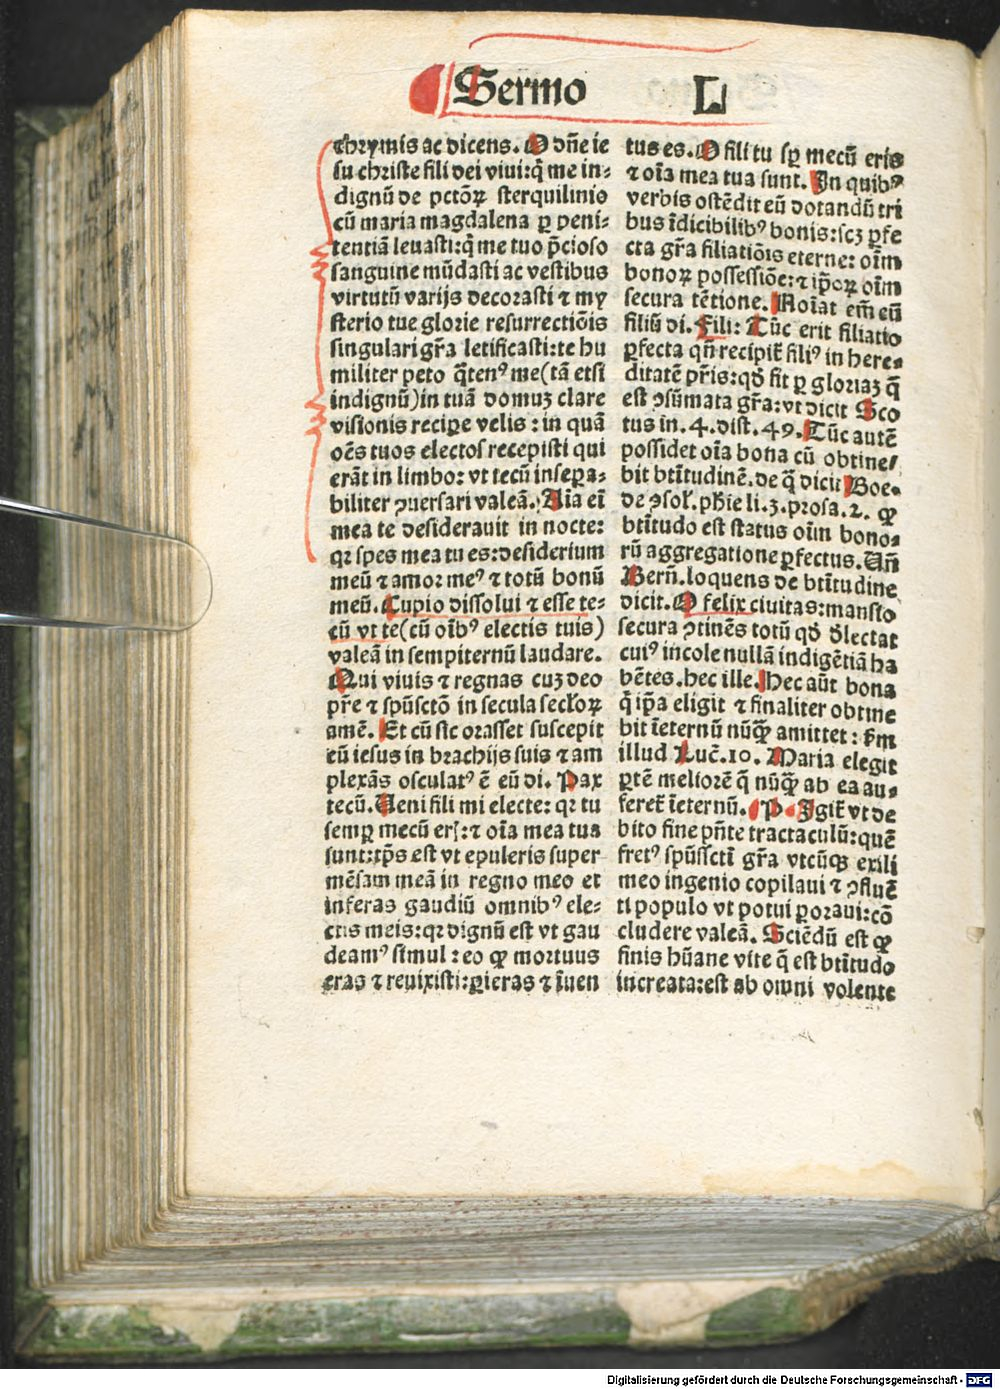 Sermo L
chrymis ac dicens. O dñe ie
su christe fili dei viui: q̃ me in-
dignũ de pctõꝝ sterquilinio
cũ maria magdalena ꝑ peni-
tentiã leuasti: q̃ me tuo p̃cioso
sanguine mũdasti ac vestibus
virtutũ varijs decorasti ⁊ my
sterio tue glorie resurrectiõis
singulari gr̃a letificasti: te hu
militer peto q̃tenꝰ me (tã etsi
indignũ) in tuã domuʒ clare
visionis recipe velis: in quã
oẽs tuos electos recepisti qui
erãt in limbo: vt tecũ insepa-
biliter ꝯuersari valeã. Aĩa eĩ
mea te desiderauit in nocte:
qꝛ spes mea tu es: desiderium
meũ ⁊ amor meꝰ ⁊ totũ bonũ
meũ. Cupio dissolui ⁊ esse te-
cũ vt te (cũ oĩbꝰ electis tuis)
valeã in sempiternũ laudare.
Qui viuis ⁊ regnas cuʒ deo
pr̃e ⁊ spũsctõ in secula seclꝝ
amẽ. Et cũ sic orasset suscepit
eũ iesus in brachijs suis ⁊ am
plexãs osculatꝰ ẽ eũ di. Pax
tecũ. Ueni fili mi electe: qꝛ tu
semꝑ mecũ er[: ⁊ oĩa mea tua
sunt: tp̃s est vt epuleris super
mẽsam meã in regno meo et
inferas gaudiũ omnibꝰ ele-
ctis meis: qꝛ dignũ est vt gau
deamꝰ simul: eo ꝙ mortuus
eras ⁊ reuixisti: ꝑieras ⁊ ĩuen
tus es. O fili tu sꝑ mecũ eris
⁊ oĩa mea tua sunt. In quibꝰ
verbis ostẽdit eũ dotandũ tri
bus ĩdicibilibꝰ bonis: scʒ ꝑfe
cta gr̃a filiatiõis eterne: oĩm
bonoꝝ possessiõe: ⁊ ip̃oꝝ oĩm
secura tẽtione. Noĩat em̃ eũ
filiũ di. Fili: Tũc erit filiatio
ꝑfecta qñ recipit̃ filiꝰ in here-
ditatẽ pr̃is: qd̃ fit ꝑ gloriaʒ q̃
est ꝯsũmata gr̃a: vt dicit Sco
tus in. 4. dist. 49. Tũc autẽ
possidet oĩa bona cũ obtine/
bit bt̃itudinẽ. de q̃ dicit Boe-
de ꝯsol̃. ph̃ie li. 3. prosa. 2. ꝙ
bt̃itudo est status oĩm bono-
rũ aggregatione ꝑfectus. Uñ
Bern̄. loquens de bt̃itudine
dicit. O felix ciuitas: mansio
secura ꝯtinẽs totũ qd̃ d̃lectat
cuiꝰ incole nullã indigẽtiã ha
bẽtes. hec ille. Hec aũt bona
q̃ ip̃a eligit ⁊ finaliter obtine
bit ĩeternũ nũq̃ꝫ amittet: s̃m
illud Luc̃. 10. Maria elegit
ꝑtẽ meliorẽ q̃ nũq̃ꝫ ab ea au-
feret̃ ĩeternũ. P. Igit̃ vt de
bito fine pñte tractaculũ: quẽ
fretꝰ spũssctĩ gr̃a vtcũqꝫ exili
meo ingenio copilaui ⁊ ꝯfluẽ
ti populo vt potui ꝑoraui: cõ
cludere valeã. Sciẽdũ est ꝙ
finis hũane vite q̃ est bt̃itudo
increata: est ab omni volente
Digitalisierung gefördert durch die Deutsche Forschungsgemeinschaft - DFG